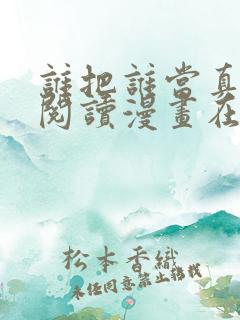 誰把誰當真
閱讀漫畫在
松本香織
未任同意禁止轉載